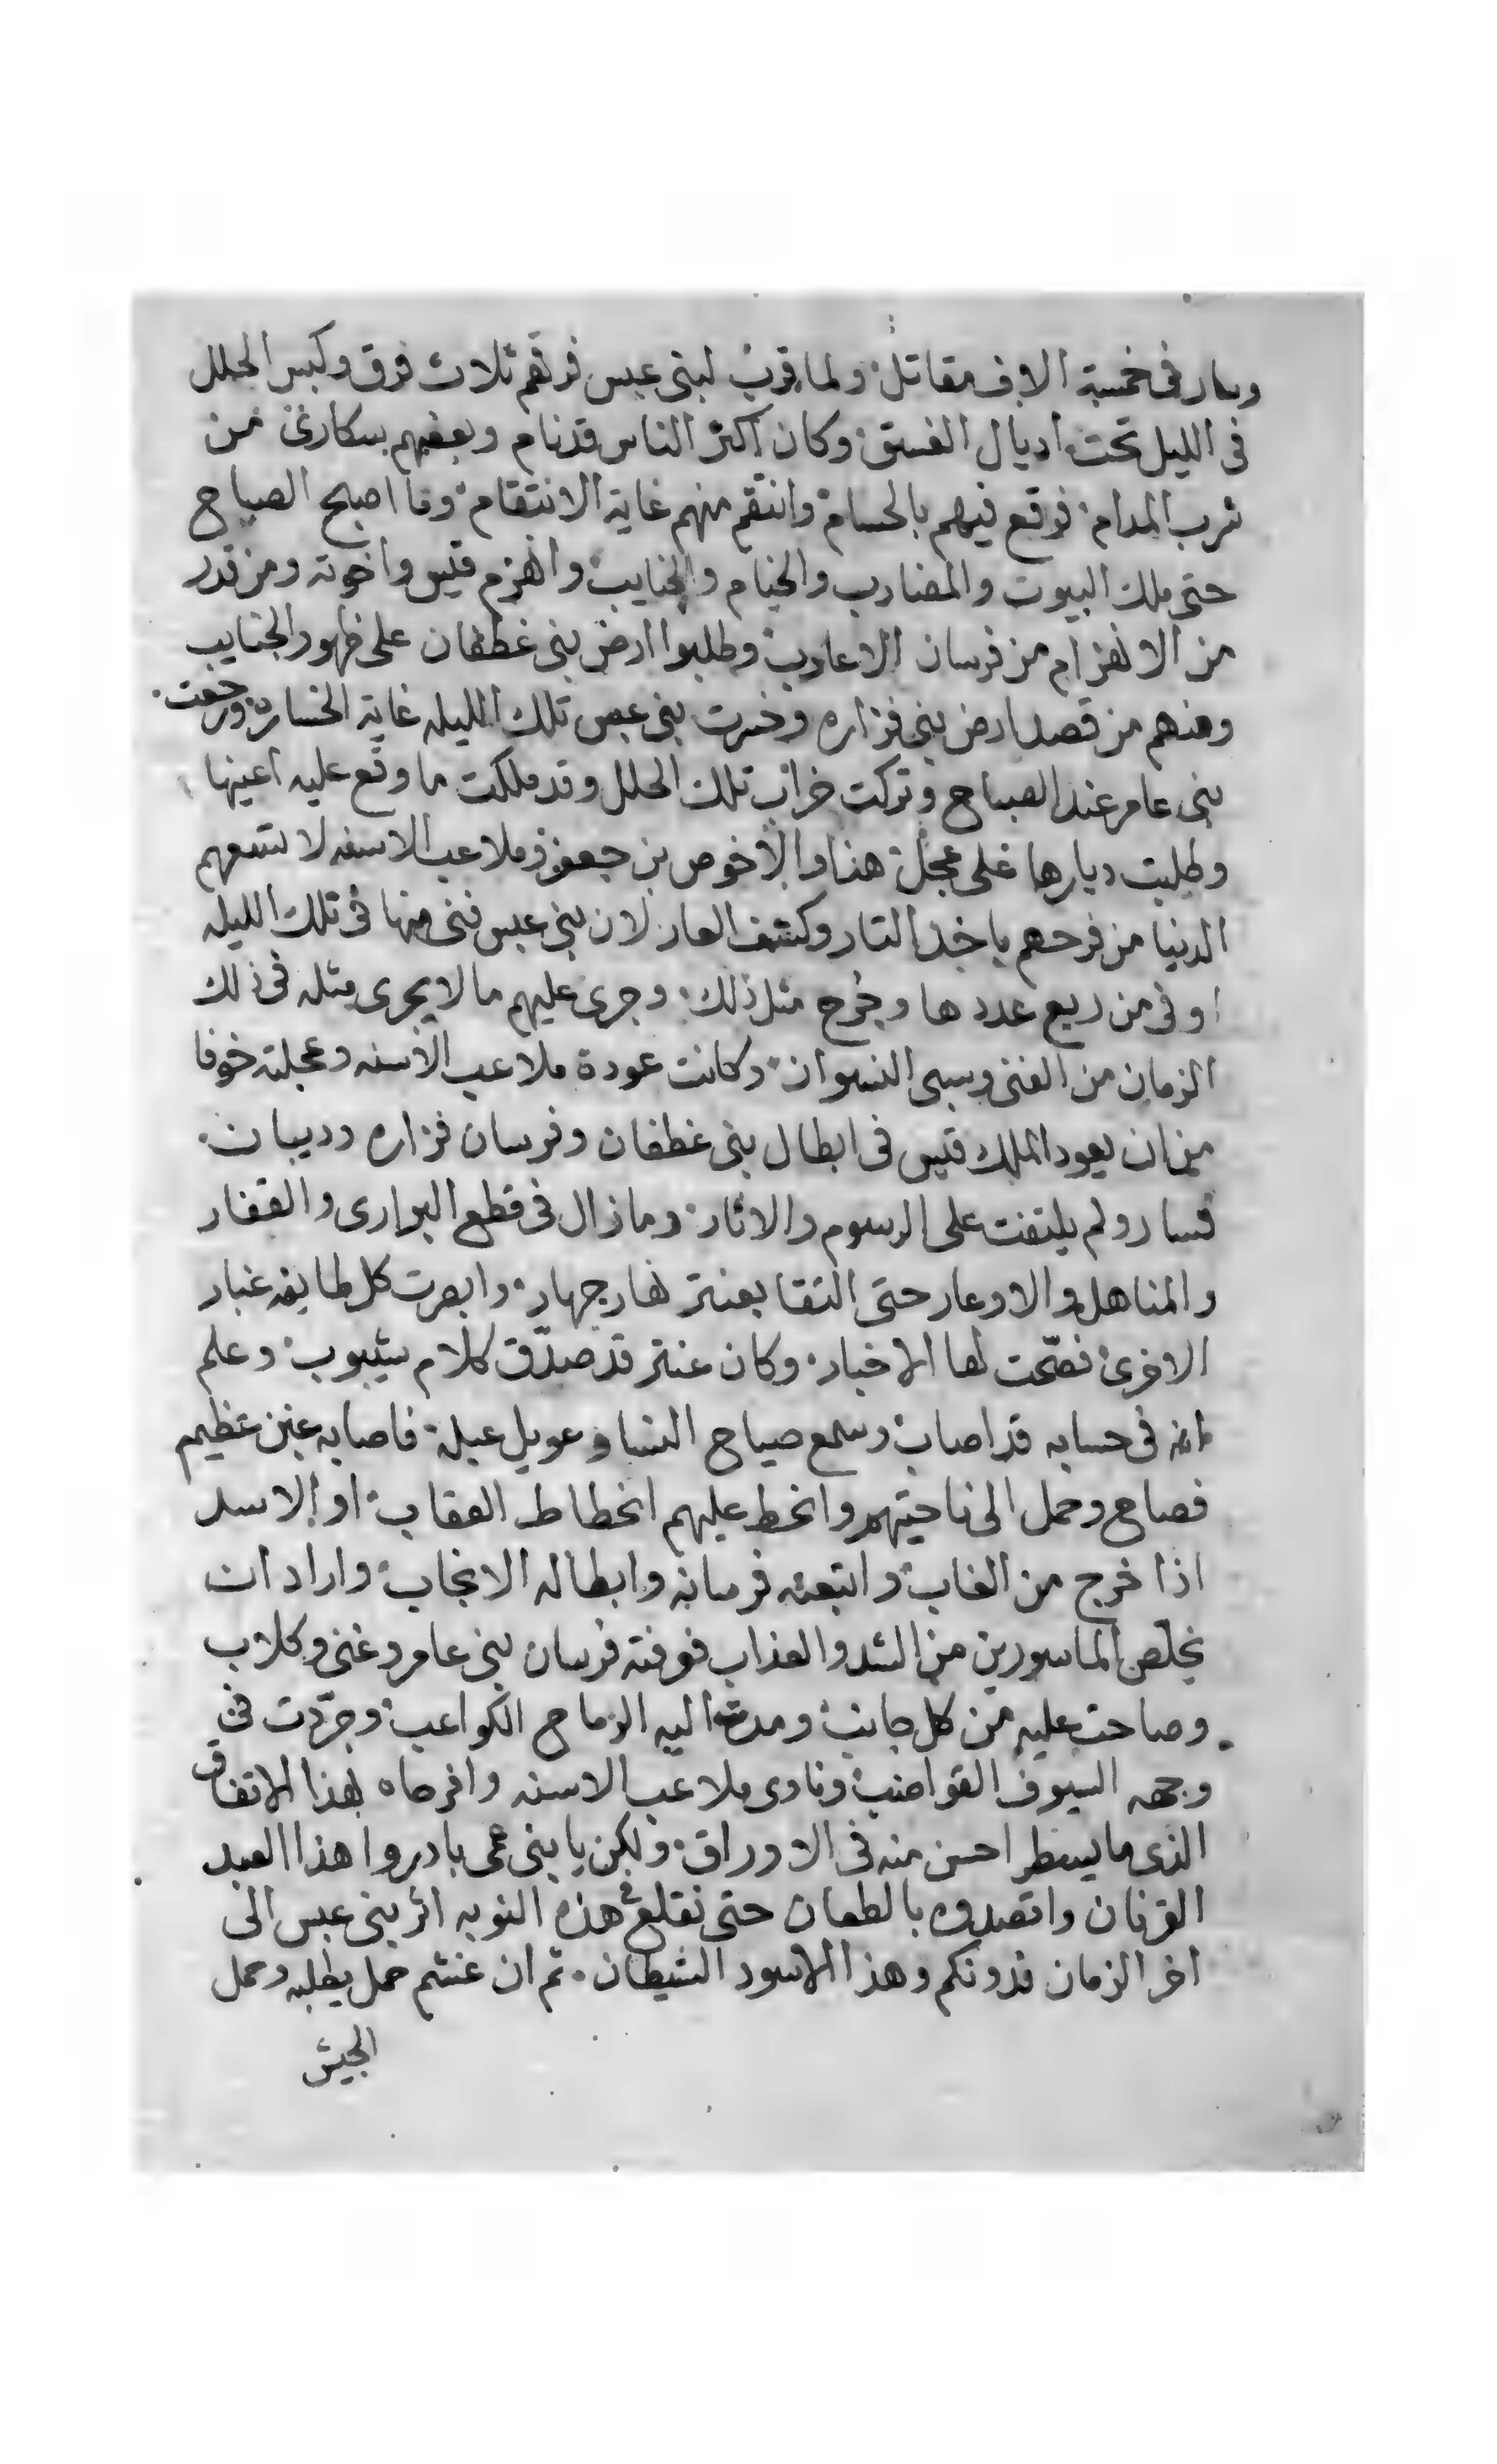 وسار فى خمسة الاف مقاتل ولما قرب لبنى عبس فرقهم ثلاث فرق وكبس الحلل
فى الليل تحت اديال الغسق وكان اكثر الناس قد نام وبعضهم سكارى من
شرب المدام فوقع فيهم بالحسام وانتقم منهم غاية الانتقام وما اصبح الصباح
حتى ملك البيوت والمضارب والخيام والجنايب وانهزم قيس واخوته ومن قدر
من الانهزام من فرسان الاعارب وطلبوا ارض بنى غطفان على ظهور الجنايب
ومنهم من قصد ارض بنى فزاره وخسرت بنى عبس تلك الليله غاية الخساره ورجعت
بنى عامر عند الصباح وتركت خراب تلك الحلل وقد ملكت ما وقع عليه اعينها
وطلبت ديارها على عجل هذا والاخوص بن جعفر وملاعب الاسنه لا تسعهم
الدنيا من فرحهم باخد التار وكشف العار لان بنى عبس فنى منها فى تلك الليله
اوفى من ربع عددها وجرح مثل ذلك وجرى عليهم ما لا يجرى مثله فى ذلك
الزمان من الفنى وسبى النسوان وكانت عودة ملاعب الاسنه وعجلته خوفا
من ان يعود الملك قيس فى ابطال بنى غطفان وفرسان فزاره ودبيان
فسار ولم يلتفت على الرسوم والاثار وما زال فى قطع البرارى والقفار
والمناهل والاوعار حتى التقا بعنتر نهار جهار وابصرت كل طايفه غبار
الاخرى فصحت لها الاخبار وكان عنتر قد صدق كلام شيبوب وعلم
انه فى حسابه قد اصاب وسمع صياح النسا وعويل عبله فاصابه غبن عظيم
فصاح وحمل الى ناحيتهم وانحط عليهم انحطاط العقاب او الاسد
اذا خرج من الغاب واتبعته فرسانه وابطاله الانجاب واراد ان
يخلص الماسورين من الشد والعذاب فوفته فرسان بنى عامر وغنى وكلاب
وصاحت عليه من كل جانب ومدت اليه الرماح الكواعب وجردت فى
وجهه السيوف القواضب ونادى ملاعب الاسنه وافرحاه بهذا الاتفاق
الذى ما يسطر احسن منه فى الاوراق ولكن يا بنى عمى بادروا هذا العبد
القرنان واقصدوه بالطعان حتى نقلع فى هذه النوبه اثر بنى عبس الى
اخر الزمان فدونكم وهذا الاسود الشيطان ثم ان غشم حمل يطلبه وحمل
الجيش